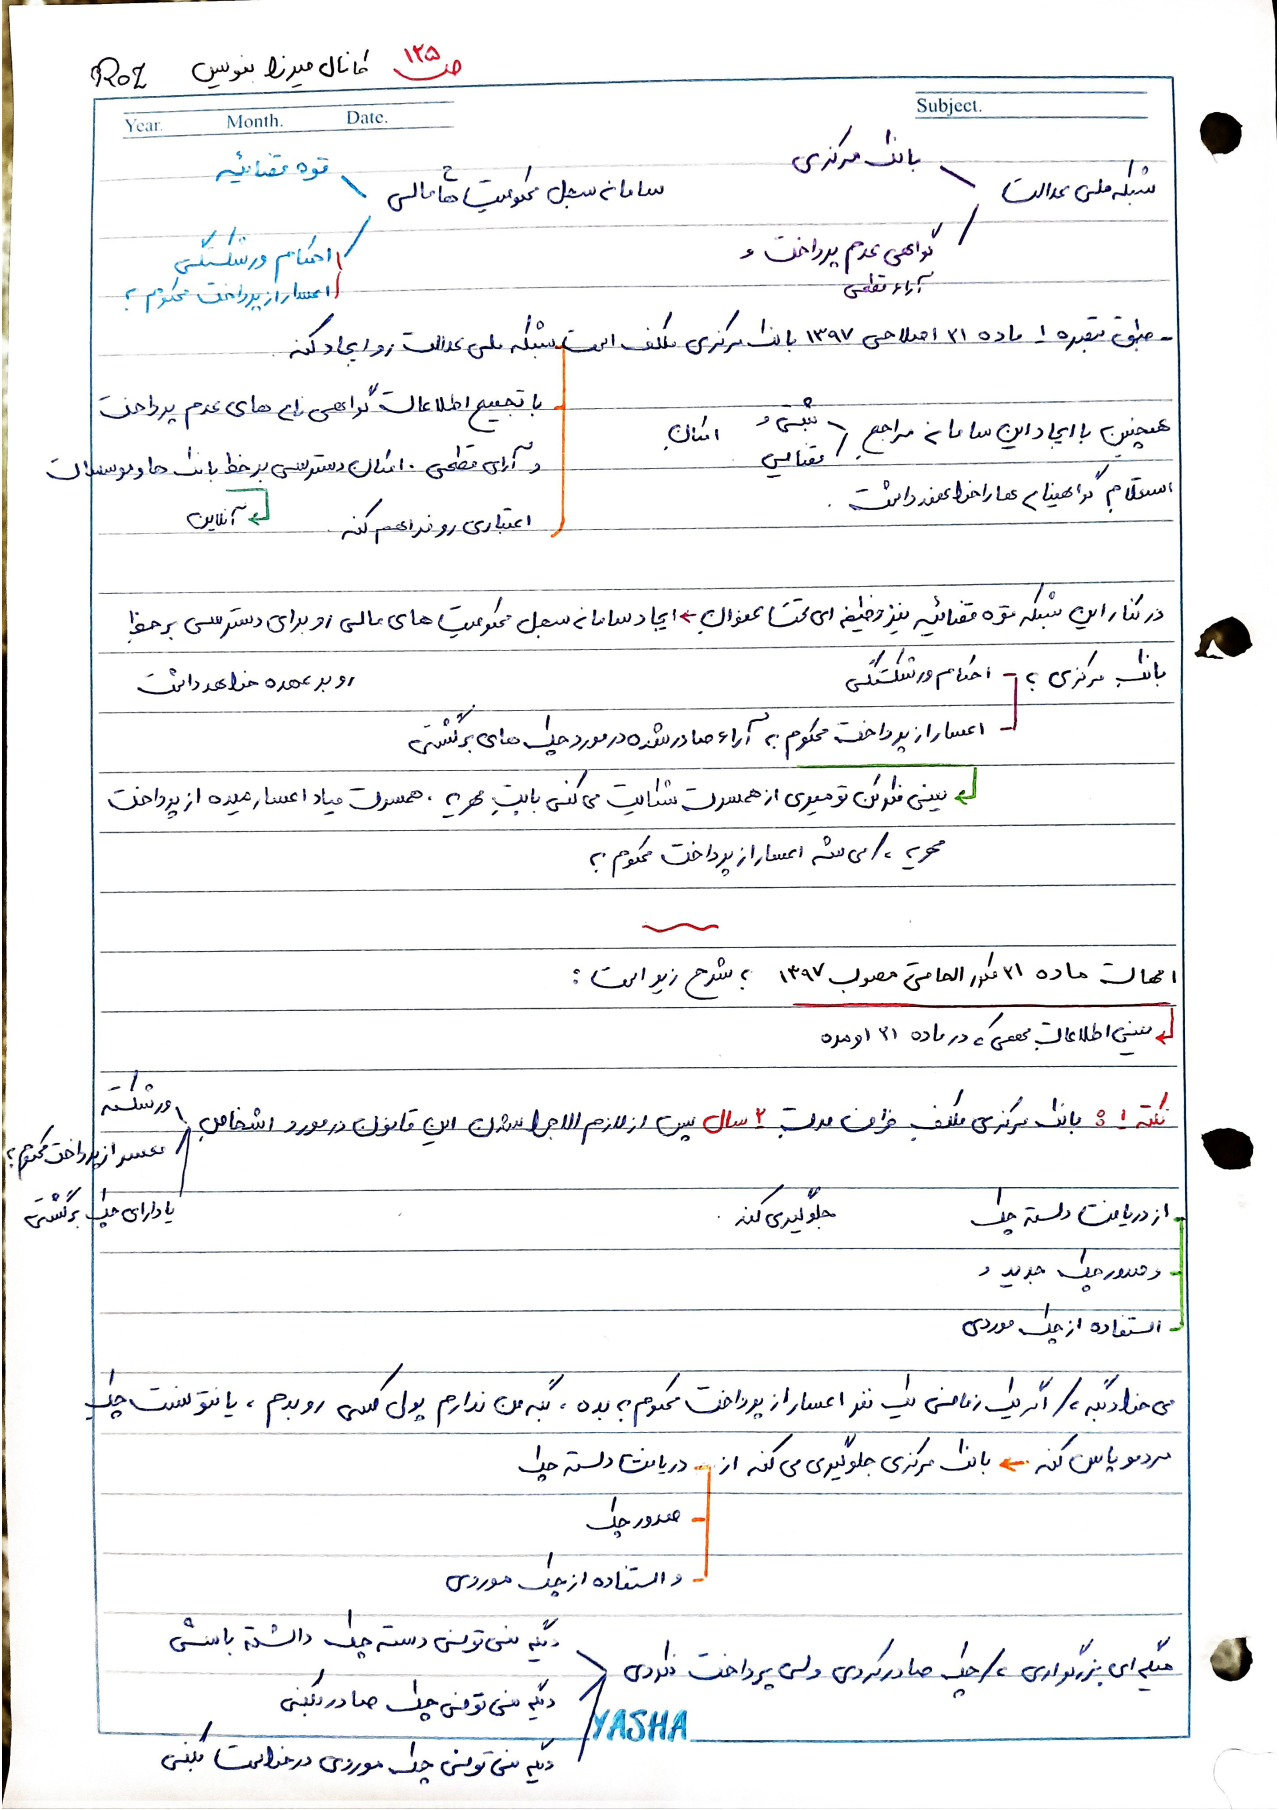 ص ۱۲۵ کانال میرزا بنویس Roz
Subject.
Year. Month. Date.
شبکه ملی عدالت بانک مرکزی
گواهی عدم پرداخت و
آراء قطعی
سامانه سجل محکومیت های مالی قوه قضائیه
احکام ورشکستگی
اعسار از پرداخت محکوم به
- طبق تبصره ۱ ماده ۲۱ اصلاحی ۱۳۹۷ بانک مرکزی مکلف است شبکه ملی عدالت رو ایجاد کنه
با تجمیع اطلاعات گواهی نامه های عدم پرداخت
و آرای قطعی . امکان دسترسی بر خط بانک ها و موسسات
آنلاین
اعتباری رو فراهم کنه .
همچنین با ایجاد این سامانه مراجع ثبتی و قضایی امکان
استعلام گواهینامه ها را خواهند داشت .
در کنار این شبکه قوه قضائیه نیز وظیفه ای تحت عنوان ← ایجاد سامانه سجل محکومیت های مالی رو برای دسترسی بر خط
بانک مرکزی به - احکام ورشکستگی رو بر عهده خواهد داشت
- اعسار از پرداخت محکوم به آراء صادر شده در مورد چک های برگشتی
یعنی فکر کن تو میری از همسرت شکایت می کنی بابت مهریه . همسرت میاد اعسار میده از پرداخت
مهریه ، می شه اعسار از پرداخت محکوم به
ماده ۲۱ مکرر الحاقی مصوب ۱۳۹۷ به شرح زیر است :
یعنی اطلاعات مهمی که در ماده ۲۱ اومده
نکته ۱ : بانک مرکزی مکلف ظرف مدت ۲ سال پس از لازم الاجرا شدن این قانون در مورد اشخاص
ورشکسته
معسر از پرداخت محکوم به
یا دارای چک برگشتی
- از دریافت دسته چک جلوگیری کنه .
- و صدور چک جدید و
- استفاده از چک موردی
می خواد بگه که اگر یک زمانی یک نفر اعسار از پرداخت محکوم به بده ، بگه من ندارم پول کسی رو بدم ، یا نتونست چک
مردمو پاس کنه ← بانک مرکزی جلوگیری می کنه از - دریافت دسته چک
- صدور چک
- و استفاده از چک موردی
میگه ای بزرگواری که چک صادر کردی ولی پرداخت نکردی
دیگه نمی تونی دسته چک داشته باشی
دیگه نمی تونی چک صادر بکنی
دیگه نمی تونی چک موردی درخواست بکنی
YASHA